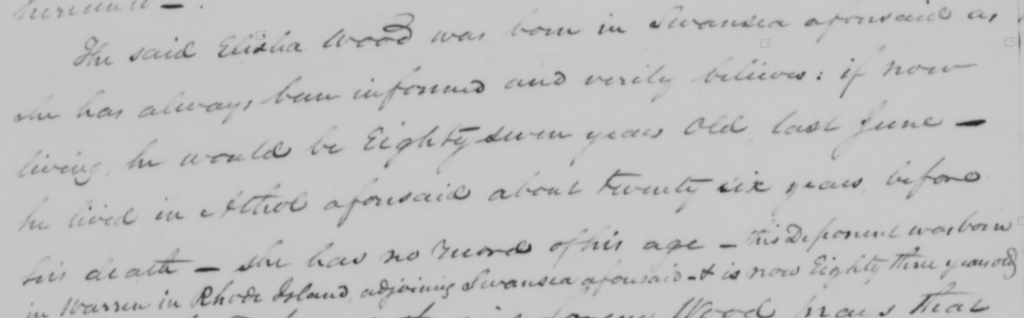 hereunto –.
The said Elisha Wood was born in Swansea aforesaid as
she has always been informed and verily believes: if now
living, he would be Eighty seven years old last June –
he lived in Athol aforesaid about twenty six years before
his death – she has no record of his age – this Deponent was born
in Warren in Rhode Island, adjoining Swansea aforesaid – & is now Eighty three years old
Wood prays that